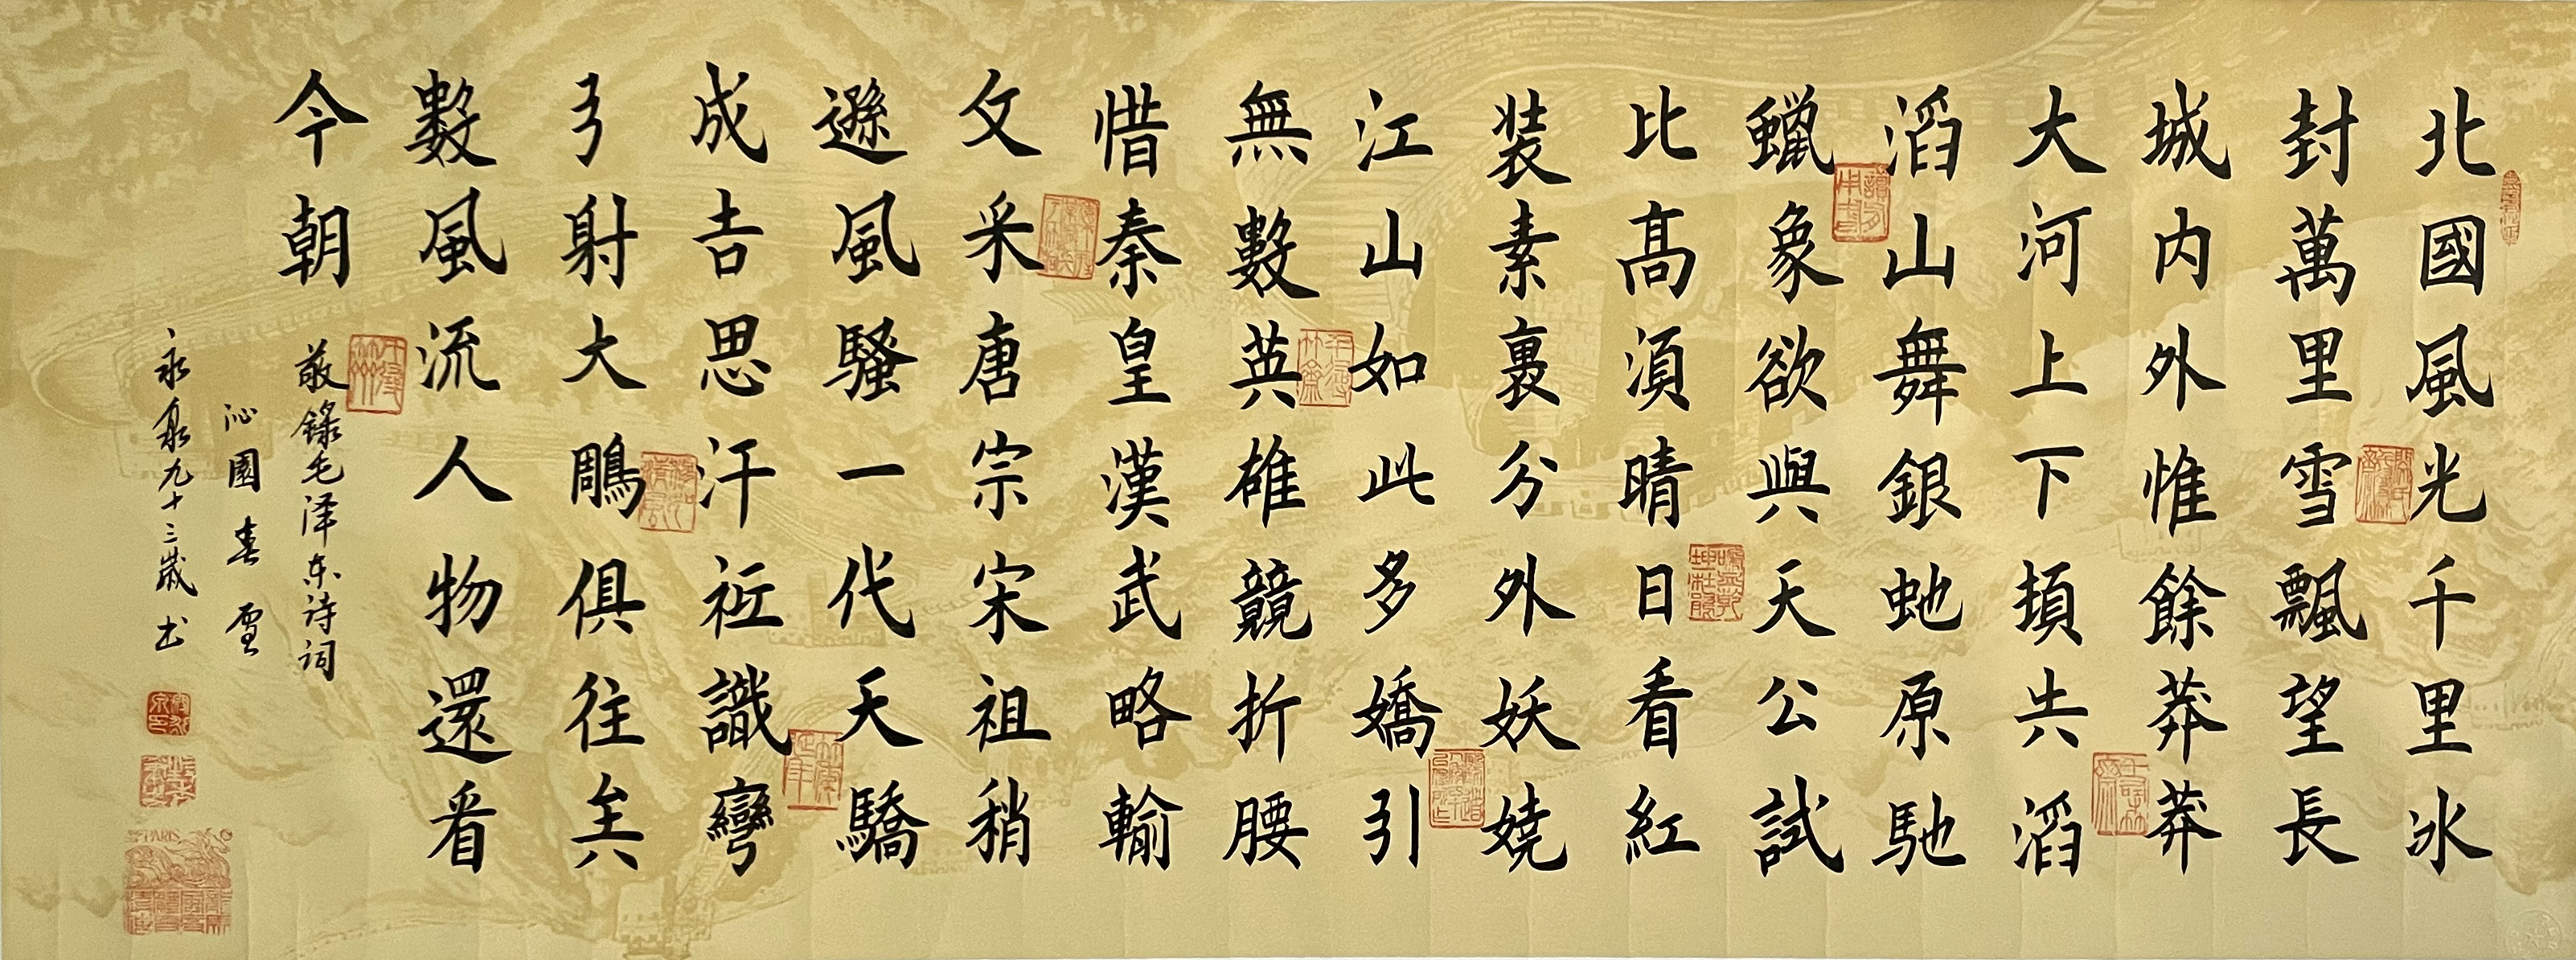 北國風光千里冰
封萬里雪飄望長
城内外惟餘莽莽
大河上下頓共滔
滔山舞銀虵原馳
蠟象欲與天公試
比髙須晴日看紅
装素裹分外妖嬈
江山如此多嬌引
無數英雄競折腰
惜秦皇漢武略輸
文采唐宗宋祖稍
遜風騷一代天驕
成吉思汗祗識彎
弓射大鵰俱往矣
數風流人物還看
今朝
敬錄毛泽东诗词
沁園春雪
永泉九十三歲书